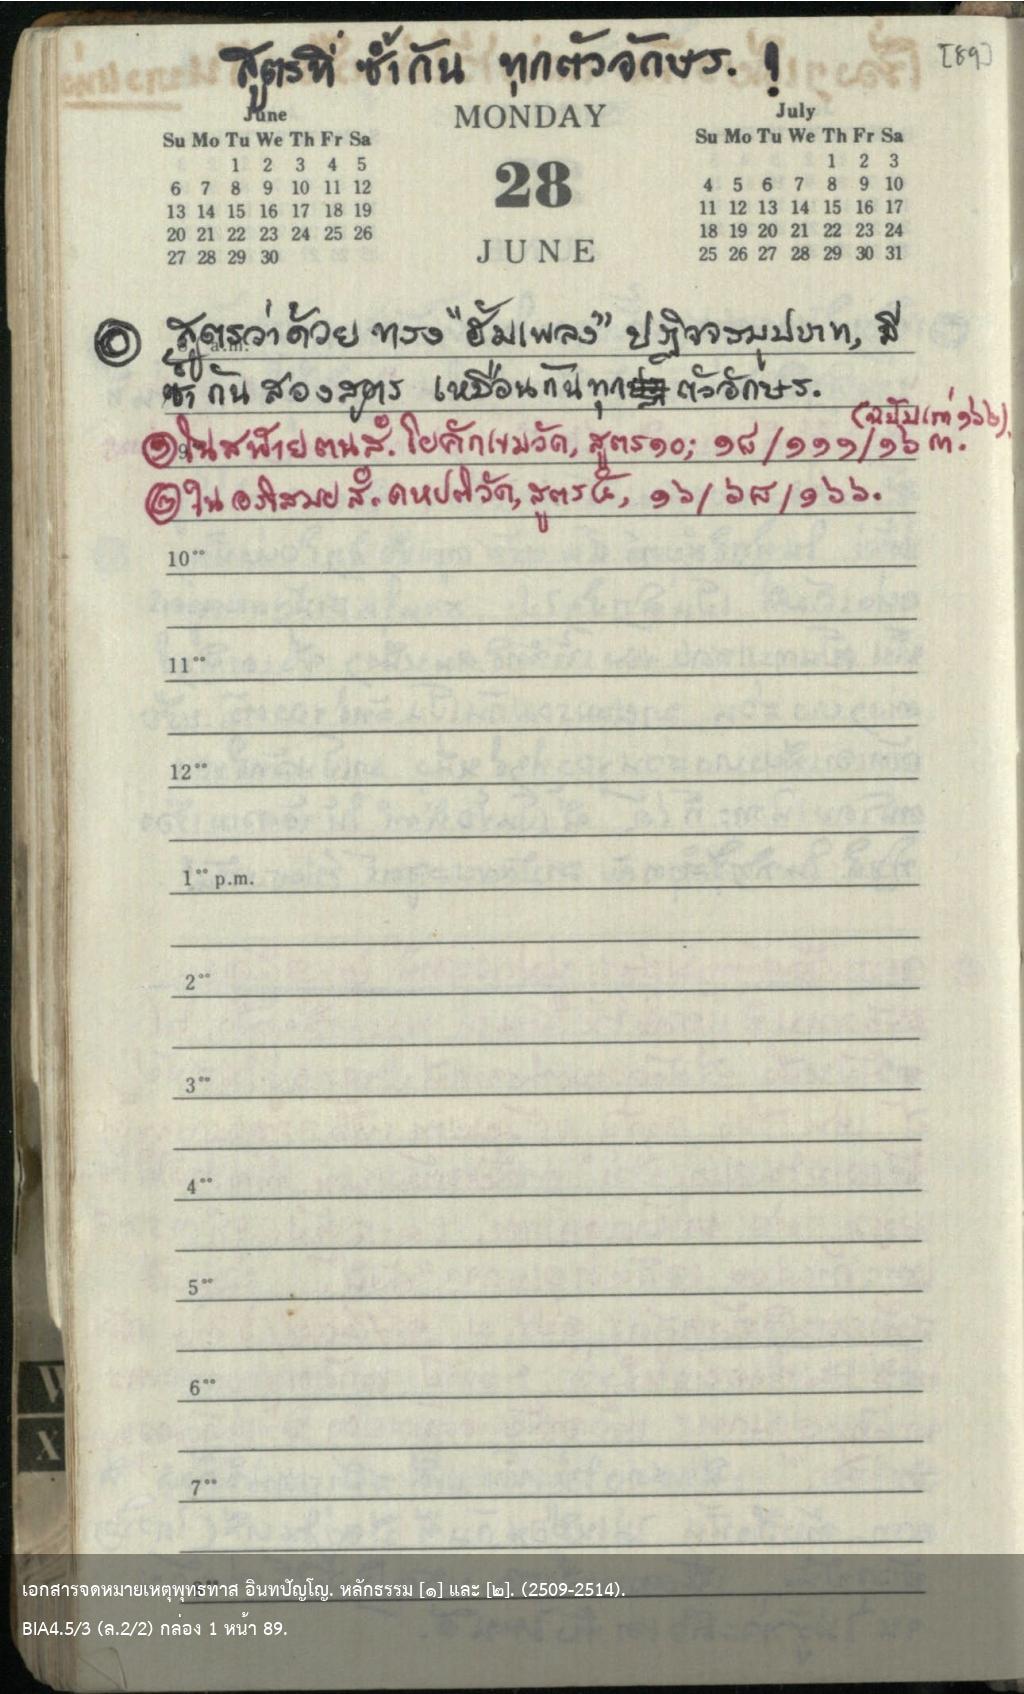 สูตรที่ ซ้ำกัน ทุกตัวอักษร. !
[89]
June
Su Mo Tu We Th Fr Sa
1 2 3 4 5
6 7 8 9 10 11 12
13 14 15 16 17 18 19
20 21 22 23 24 25 26
27 28 29 30
MONDAY
28
JUNE
July
Su Mo Tu We Th Fr Sa
1 2 3
4 5 6 7 8 9 10
11 12 13 14 15 16 17
18 19 20 21 22 23 24
25 26 27 28 29 30 31
สูตรว่าด้วย ทรง "ฮัมเพลง" ปฏิจจสมุปบาท, มี
a.m.
ซ้ำ กัน สองสูตร เหมือนกันทุก ตัวอักษร.
๑ ในสฬายตนสํ. โยคักเขมวัค, สูตร๑๐; ๑๘/๑๑๑/๑๖๓.
๒ ใน อภิสมยสํ. คหปติวัค, สูตร๕, ๑๖/๖๘/๑๖๖.
10°°
11°°
12°°
1°° p.m.
2°°
3°°
4°°
5°°
6°°
7°°
W
X
เอกสารจดหมายเหตุพุทธทาส อินทปัญโญ. หลักธรรม [๑] และ [๒]. (2509-2514).
BIA4.5/3 (ล.2/2) กล่อง 1 หน้า 89.